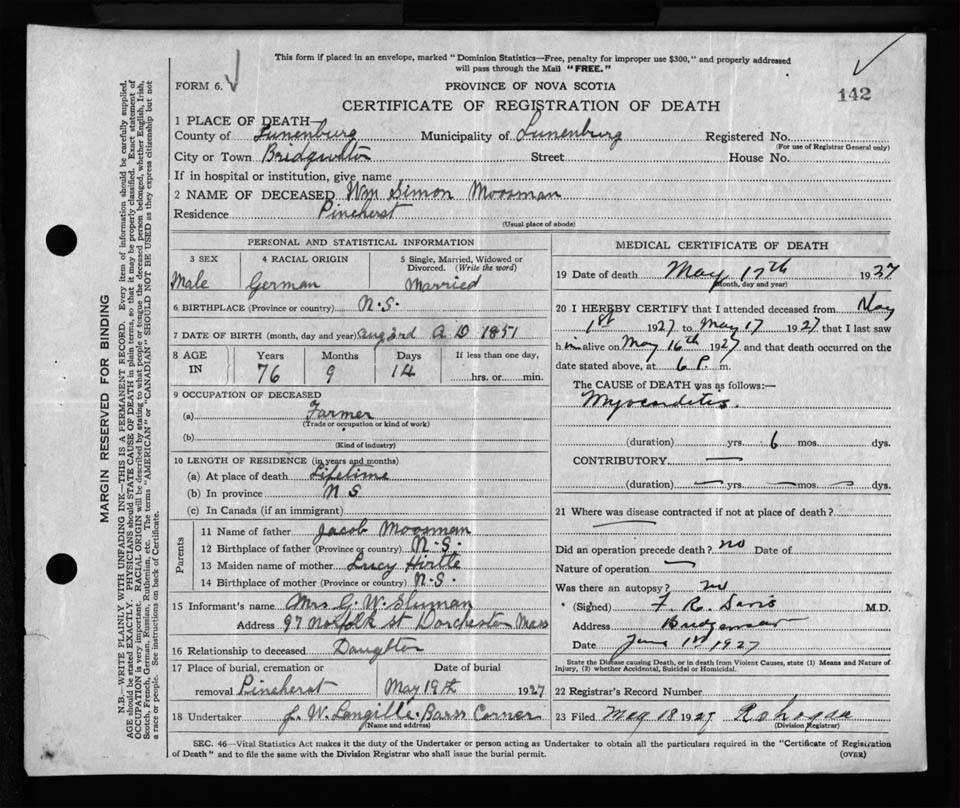 This form if placed in an envelope, marked "Dominion Statistics—Free, penalty for improper use $300," and properly addressed
will pass through the Mail "FREE."
FORM 6.
PROVINCE OF NOVA SCOTIA
142
CERTIFICATE OF REGISTRATION OF DEATH
1 PLACE OF DEATH
County of Lunenburg Municipality of Lunenburg Registered No.
(For use of Registrar General only)
City or Town Bridgwater Street House No.
If in hospital or institution, give name
2 NAME OF DECEASED Wm Simon Moosman
Residence Pinehurst
(Usual place of abode)
PERSONAL AND STATISTICAL INFORMATION
3 SEX 4 RACIAL ORIGIN 5 Single, Married, Widowed or
Divorced. (Write the word)
Male German Married
6 BIRTHPLACE (Province or country) N.S.
7 DATE OF BIRTH (month, day and year) Aug 3rd A D 1851
8 AGE Years Months Days If less than one day,
IN 76 9 14 hrs. or min.
9 OCCUPATION OF DECEASED
(a) Farmer
(Trade or occupation or kind of work)
(b)
(Kind of industry)
10 LENGTH OF RESIDENCE (in years and months)
(a) At place of death Lifetime
(b) In province N S
(c) In Canada (if an immigrant)
Parents
11 Name of father Jacob Moosman
12 Birthplace of father (Province or country) N.S.
13 Maiden name of mother Lucy Hirtle
14 Birthplace of mother (Province or country) N.S.
15 Informant's name Mrs G. W. Sluman
Address 97 Norfolk St Dorchester Mass
16 Relationship to deceased Daughter
17 Place of burial, cremation or Date of burial
removal Pinehurst May 19th 1927
18 Undertaker J. W. Langille Barss Corner
(Name and address)
MEDICAL CERTIFICATE OF DEATH
19 Date of death May 17th 1927
(Month, day and year)
20 I HEREBY CERTIFY that I attended deceased from May
1st 1927 to May 17 1927 that I last saw
h im alive on May 16th 1927 and that death occurred on
date stated above, at 6 P. m.
The CAUSE of DEATH was as follows:—
Myocarditis.
(duration) yrs. 6 mos. dys.
CONTRIBUTORY —
(duration) — yrs. — mos. — dys.
21 Where was disease contracted if not at place of death?
Did an operation precede death? no Date of
Nature of operation —
Was there an autopsy? no
(Signed) F. R. Davis M.D.
Address Bridgewater
Date June 1st 1927
State the Disease causing Death, or in death from Violent Causes, state (1) Means and Nature of
Injury, (2) whether Accidental, Suicidal or Homicidal.
22 Registrar's Record Number
23 Filed May 18 1927
(Division Registrar)
SEC. 46—Vital Statistics Act makes it the duty of the Undertaker or person acting as Undertaker to obtain all the particulars required in the "Certificate of Registration
of Death" and to file the same with the Division Registrar who shall issue the burial permit.
(OVER)
MARGIN RESERVED FOR BINDING
N.B.—WRITE PLAINLY WITH UNFADING INK—THIS IS A PERMANENT RECORD. Every item of information should be carefully supplied.
AGE should be stated EXACTLY. PHYSICIANS should STATE CAUSE OF DEATH in plain terms, so that it may be properly classified. Exact statement of
OCCUPATION is very important. RACIAL ORIGIN will be described by stating to what people or tongue the deceased person belonged, whether English, Irish,
Scotch, French, German, Russian, Ruthenian, etc. The terms "AMERICAN" or "CANADIAN" SHOULD NOT BE USED as they express citizenship but not
a race or people. See instructions on back of Certificate.